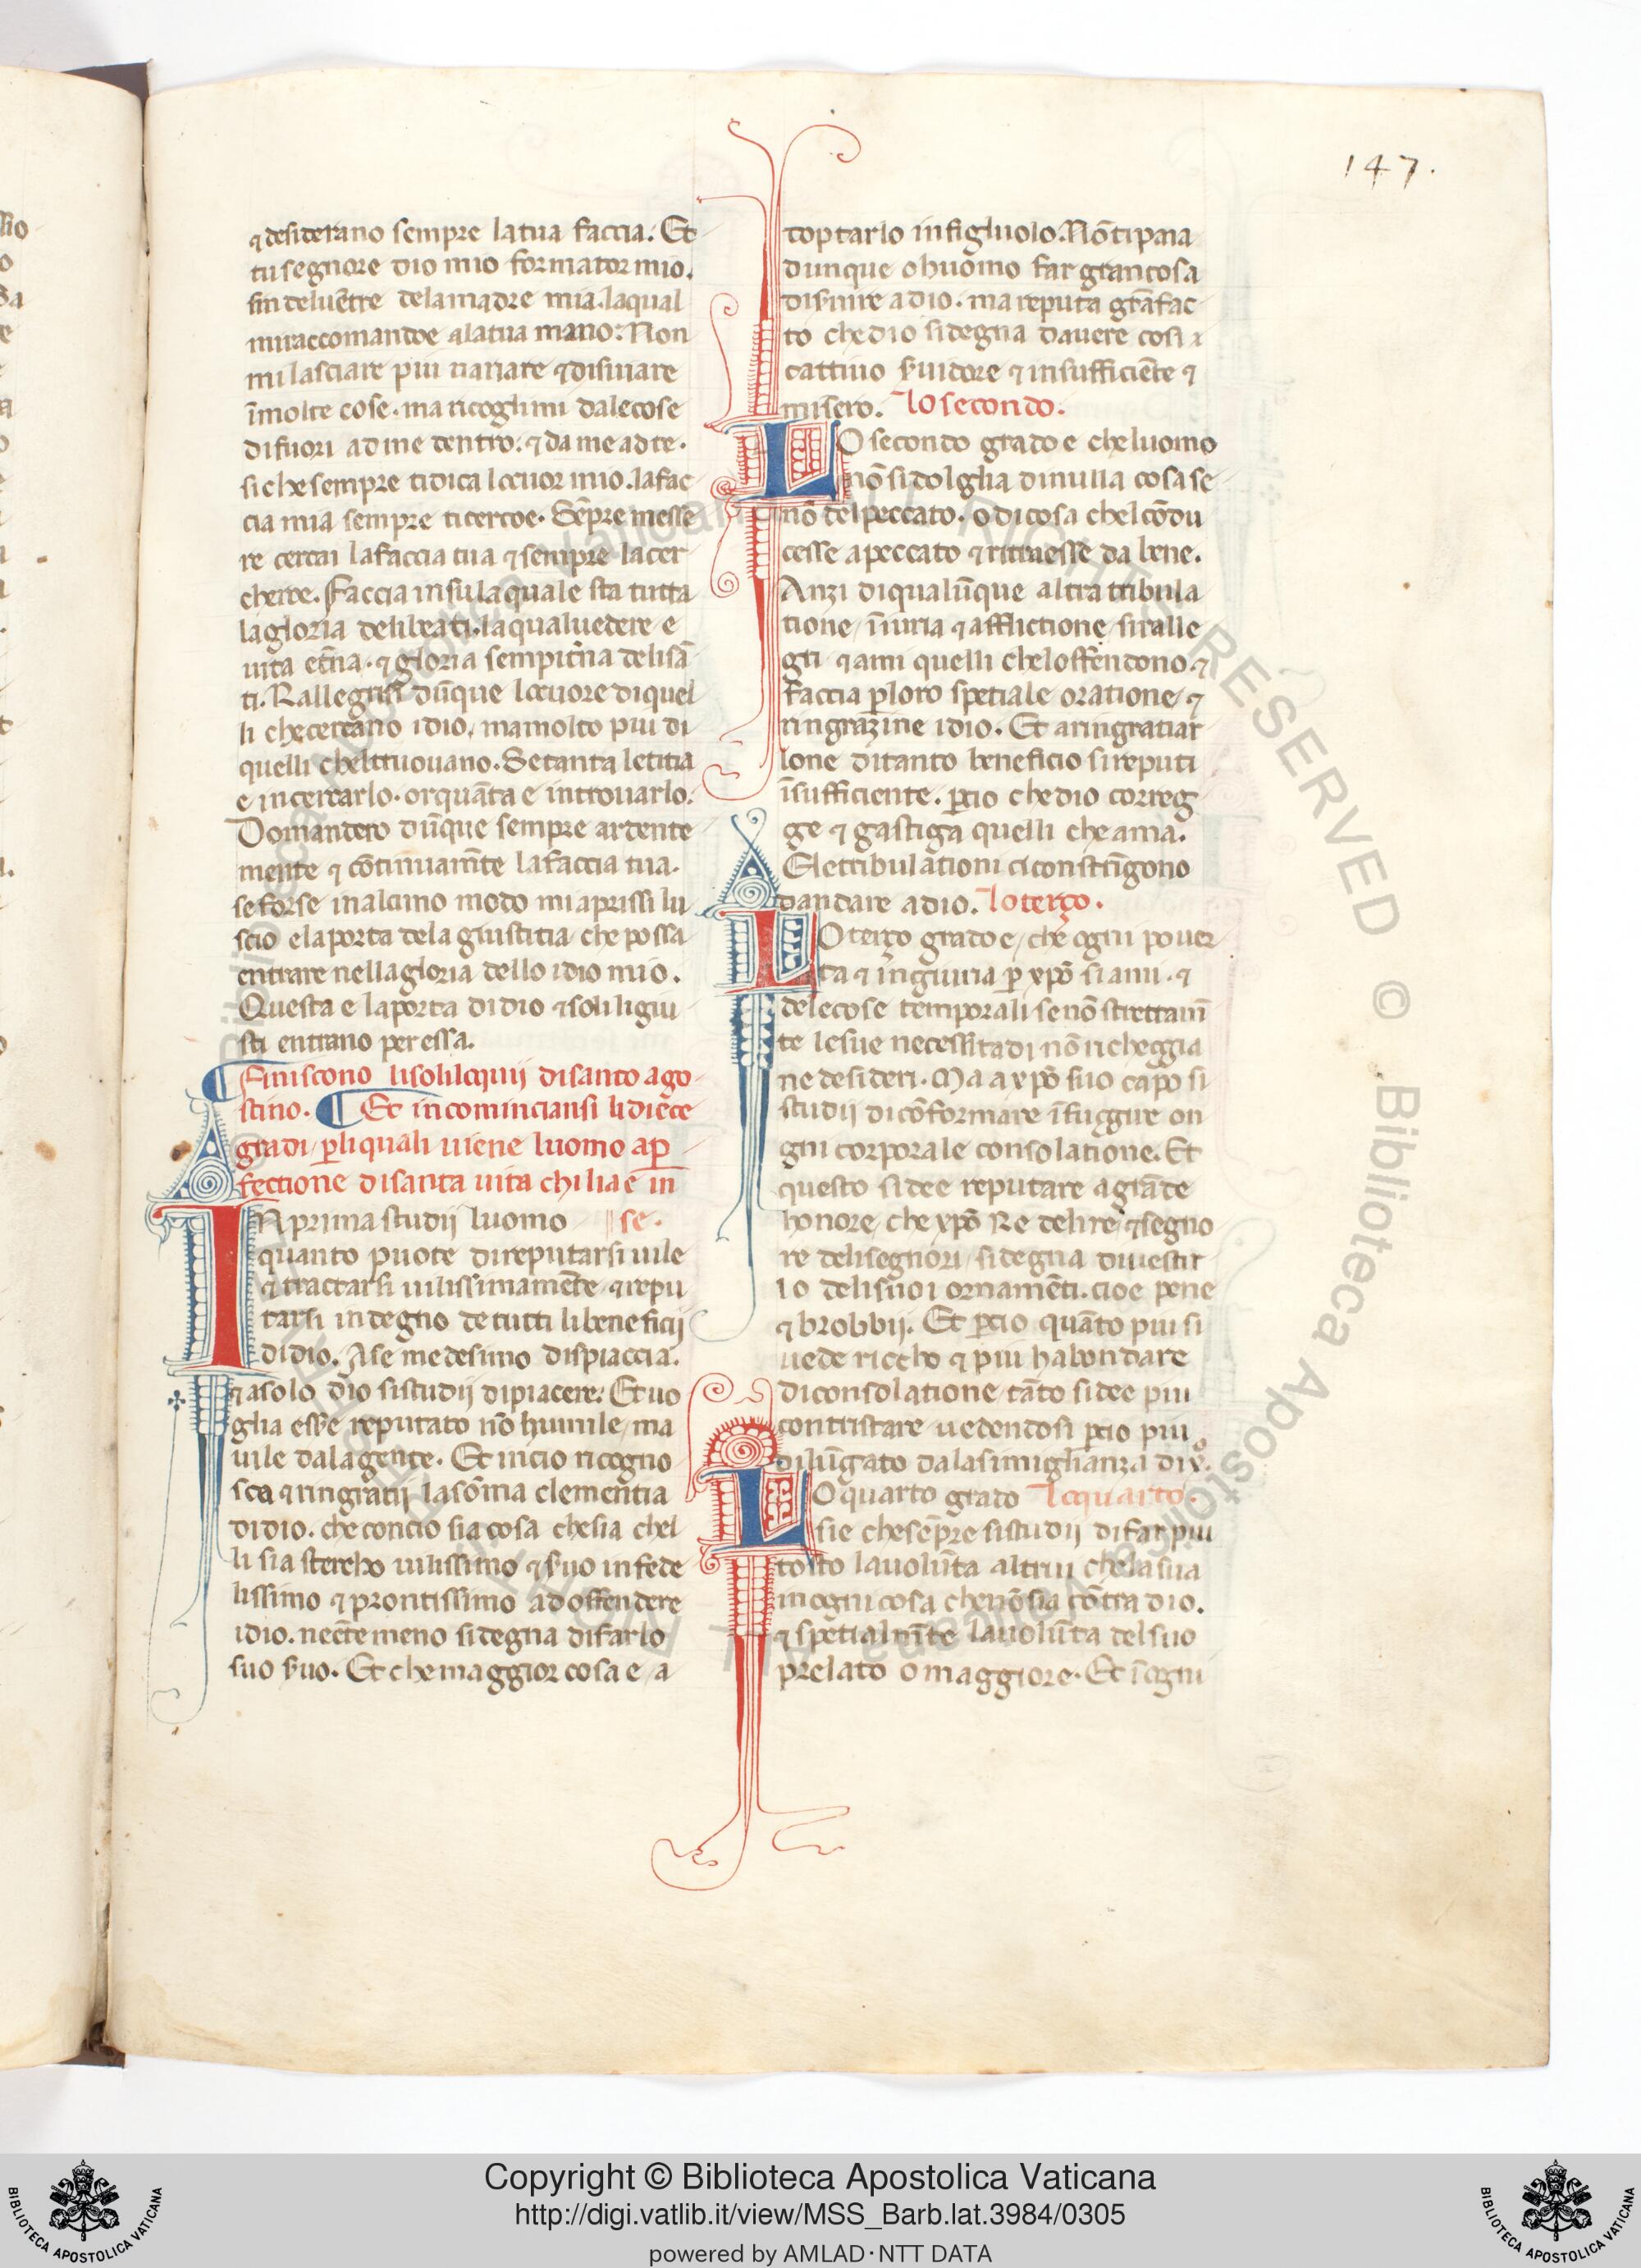 147.
⁊ desiderano sempre la tua faccia. Et
tu segnore dio mio formator mio.
fin del uẽtre dela madre mia. la qual
mi raccomandoe a la tua mano: Non
mi lasciare piu uariare ⁊ disuiare
ĩ molte cose. ma ricoglimi dale cose
di fuori ad me dentro: ⁊ da me ad te.
si che sempre ti dica lo cuor mio. la fac
cia mia sempre ti cercoe. Sẽpre messe
re cercai la faccia tua ⁊ sempre la cer
cheroe. Faccia in su la quale sta tutta
la gloria deli beati. la qual uedere e
uita et̃na. ⁊ gloria sempit̃na deli sã
ti. Rallegrisi dũque lo cuore di quel
li che cercano idio, ma molto piu di
quelli chel truouano. Se tanta letitia
e in cercarlo. or quãta e in trouarlo.
Domandero dũque sempre ardente
mente ⁊ cõtinuamẽte la faccia tua.
se forse in alcuno modo mi aprissi lu
scio e la porta dela giustitia che possa
entrare nella gloria dello idio mio.
Questa e la porta di dio ⁊ soli li giu
sti entrano per essa.
¶ Finiscono li soliloquij di santo ago
stino. ¶ Et incominciansi li diece
gradi, ꝑ li quali uiene luomo a ꝑ
fectione di santa uita chi li a e in
IN prima studij luomo se.
quanto puote di reputarsi uile
⁊ tractarsi uilissimamẽte ⁊ repu
tarsi indegno de tutti li beneficij
di dio. A se medesimo dispiaccia.
⁊ a solo dio si studij di piacere: Et uo
glia esse reputato nõ humile, ma
uile dala gente. Et in cio ricogno
sca ⁊ ringratij la sõma clementia
di dio. che concio sia cosa che sia chel
li sia stercho uilissimo ⁊ suo infede
lissimo ⁊ prontissimo ad offendere
idio. nẽte meno si degna di farlo
suo suo. Et che maggior cosa e, a
doptarlo in figluolo. Nõ ti paia
dunque o huomo far gran cosa
di suire a dio. ma reputa grã fac
to che dio si degna dauere cosi
cattiuo suidore ⁊ insufficiẽte ⁊
misero. Lo secondo.
LO secondo grado e che luomo
nõ si dolglia di nulla cosa se
nõ del peccato. o di cosa chel cõdu
cesse a peccato ⁊ ritraesse da bene.
Anzi di qualũque altra tribula
tione, ĩiuria ⁊ afflictione, si ralle
gri ⁊ ami quelli chel offendono. ⁊
faccia ꝑ loro spetiale oratione, ⁊
ringrazine idio. Et a ringratiar
lone di tanto beneficio si reputi
ĩsufficiente. ꝑcio che dio correg
ge ⁊ gastiga quelli che ama.
E le tribulationi ci constrĩgono
dandare a dio. Lo terço.
LO terço grado e, che ogni pouer
ta ⁊ ingiuria ꝑ xp̃o si ami. ⁊
dele cose temporali se nõ strettam̃
te le sue necessitadi nõ richeggia
ne desideri. Ma a xp̃o suo capo si
studij di cõformare ĩ fuggire on
gni corporale consolatione. Et
questo si dee reputare a grãde
honore, che xp̃o Re deli re ⁊ segno
re deli segnori, si degna di uestir
lo deli suoi ornamẽti. cioe pene
⁊ brobbij. Et ꝑcio quãto piu si
uede riccho ⁊ piu habondare
di consolatione, tãto si dee piu
contristare uedendosi ꝑcio piu
dilũgato dala simiglianza di x̊.
LO quarto grado Lo quarto.
sie che sẽpre si studij di far piu
tosto la uolũta altrui che la sua
in ogni cosa che nõ sia cõtra dio.
⁊ spetialmẽte la uolũta del suo
prelato o maggiore. Et ĩ ogni
© Biblioteca Apostolica Vaticana ALL RIGHTS RESERVED
Copyright © Biblioteca Apostolica Vaticana
http://digi.vatlib.it/view/MSS_Barb.lat.3984/0305
powered by AMLAD·NTT DATA
BIBLIOTECA APOSTOLICA VATICANA
BIBLIOTECA APOSTOLICA VATICANA